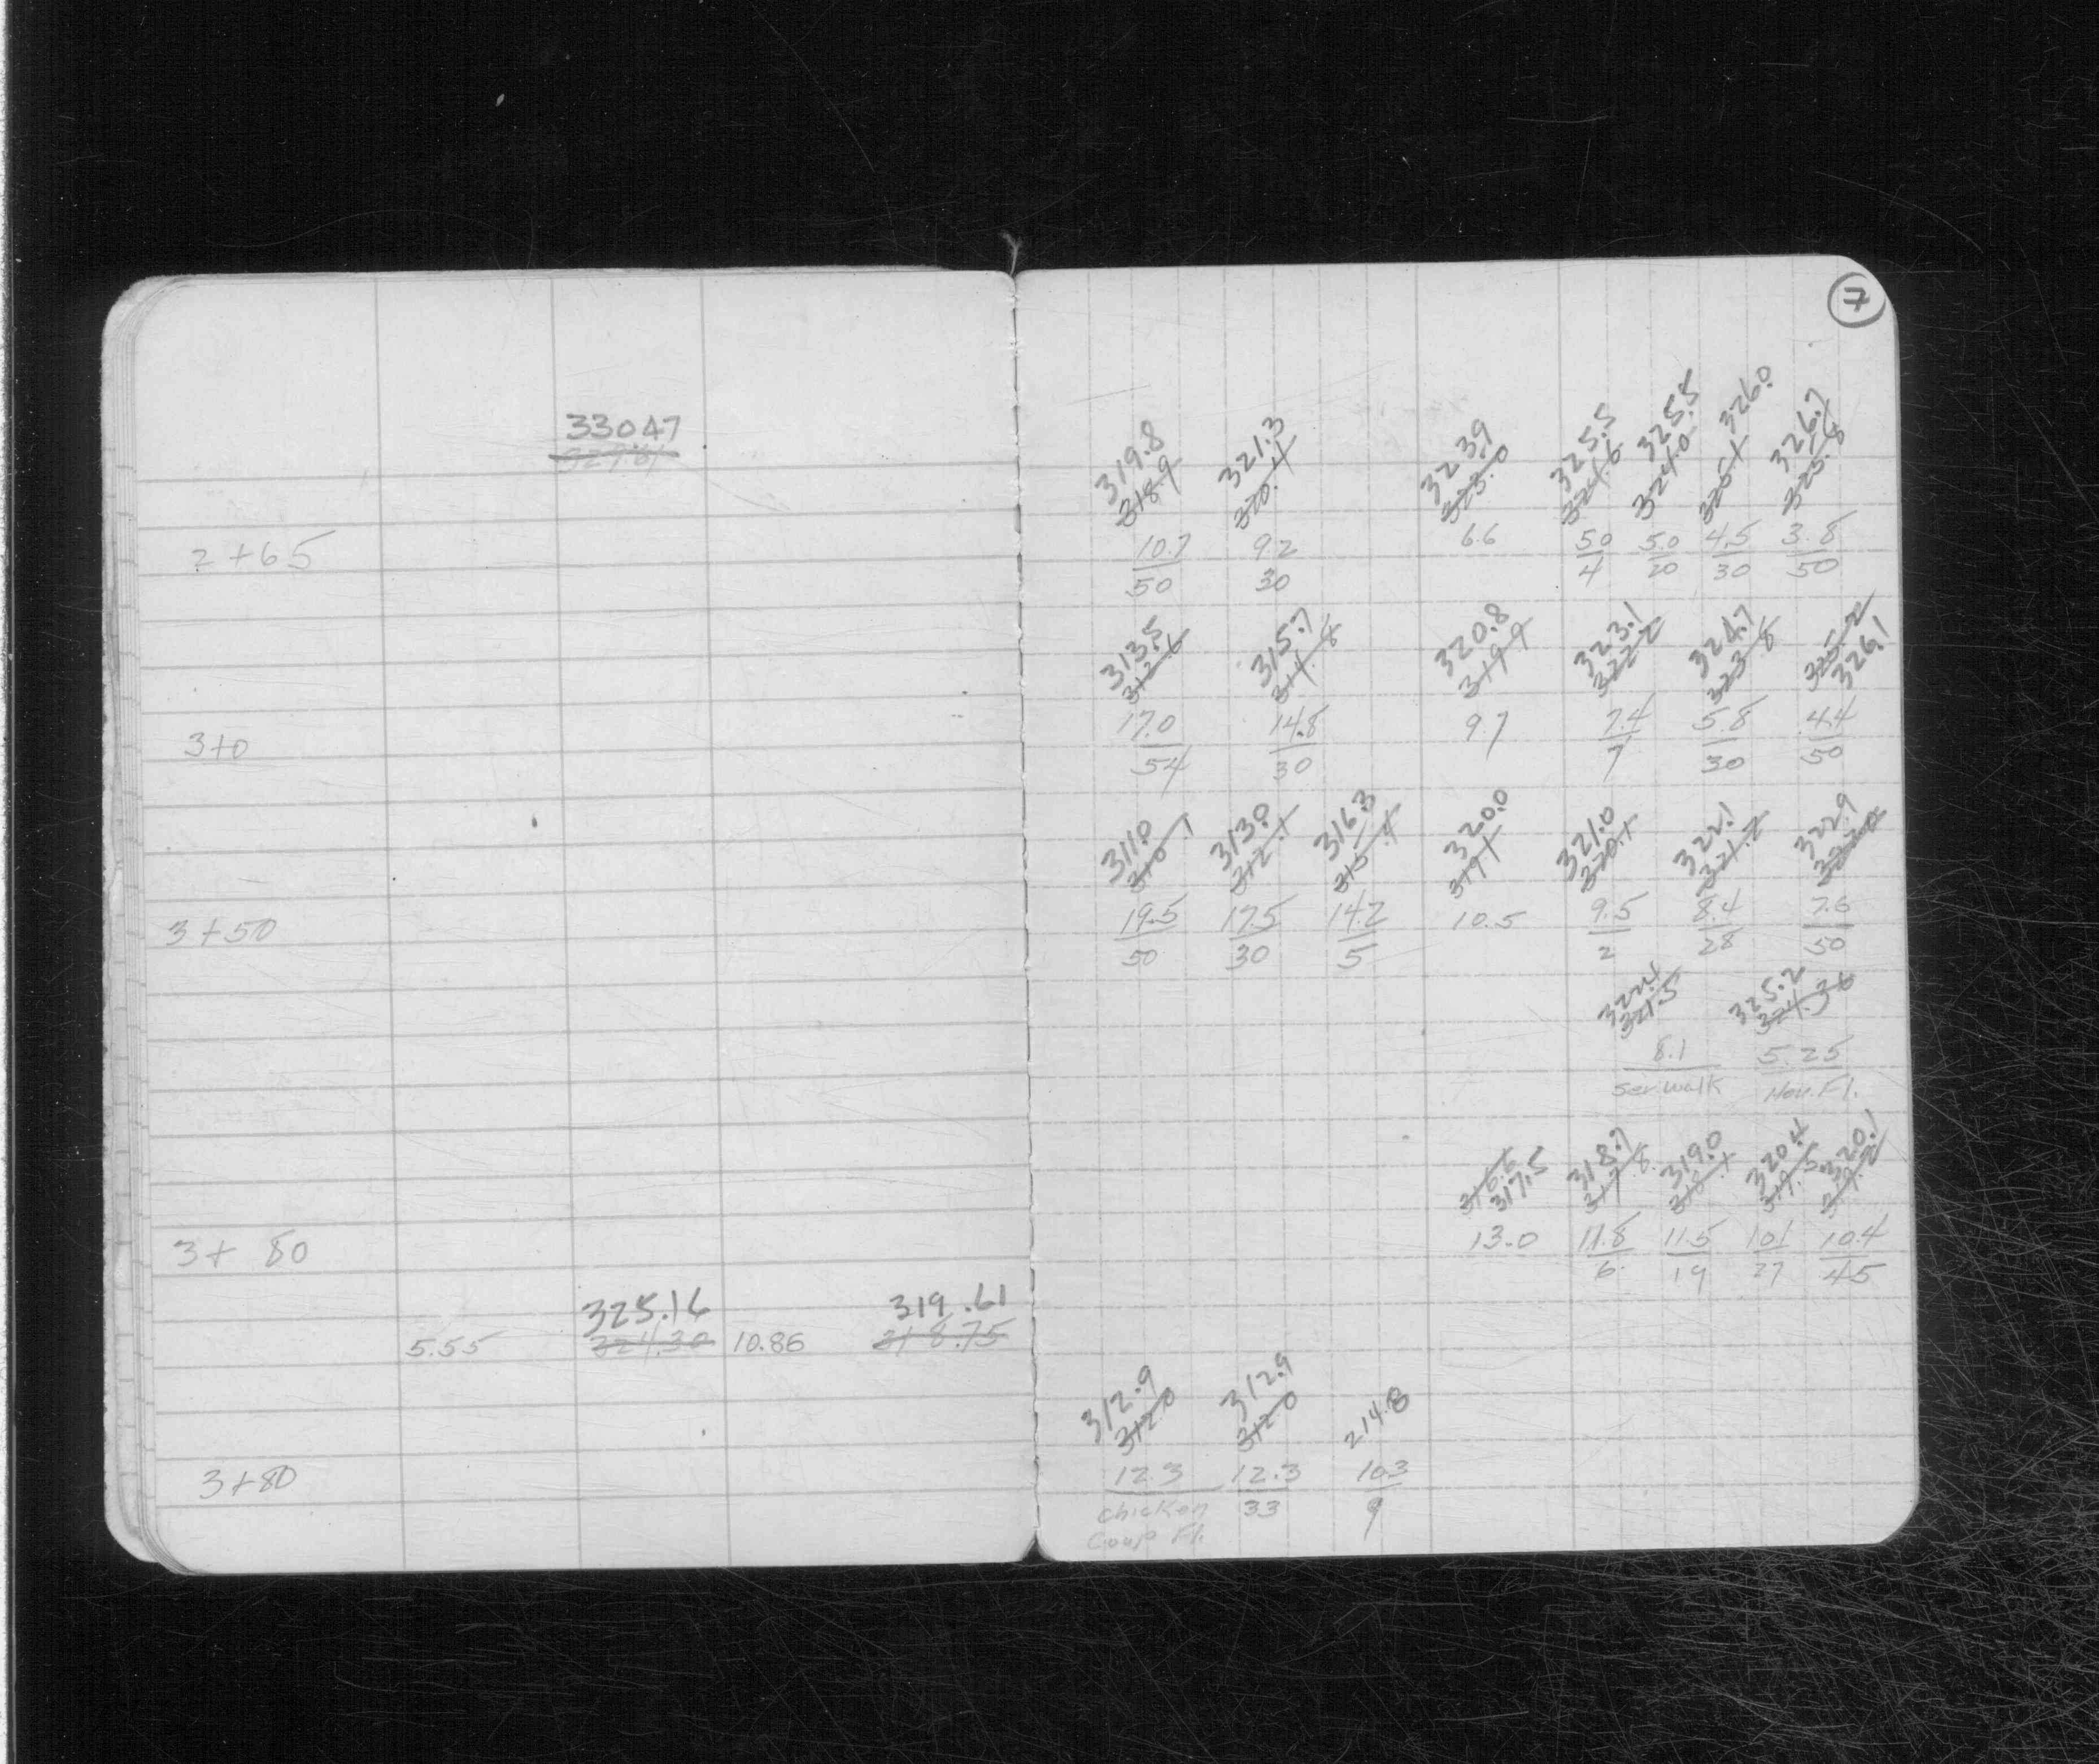 7
33047
319.8 321.3 323.9 325.5 325.5 326.0 326.7
318.9 320.4 323.0 324.6 324.0 325.1 325.8
2+65 10.7 9.2 6.6 5.0 5.0 4.5 3.8
50 30 4 20 30 50
313.5 315.7 320.8 323.1 324.7 325.2
312.6 314.8 319 9 322 2 323 8 326.1
3+0 17.0 14.8 9.7 7.4 5.8 4.4
54 30 7 30 50
311.0 313.0 316.3 320.0 321.0 322.1 322.9
310 1 312.1 315.4 319 1 320.1 321.2
3+50 19.5 17.5 14.2 10.5 9.5 8.4 7.6
50 30 5 2 28 50
322.4 325.2
321.5 324.36
8.1 5.25
Ser. walk Hou. Fl.
316.6 318.7 319.0 320.4 320.1
317.5 317 8 318.1 319.5 319.2
3+ 80 13.0 11.8 11.5 10.1 10.4
6 19 27 45
325.16 319.61
5.55 324.30 10.86 318.75
312.9 312.9 214.8
312.0 312 0
3+80 12.3 12.3 10.3
chicken 33 9
Coup Fl.